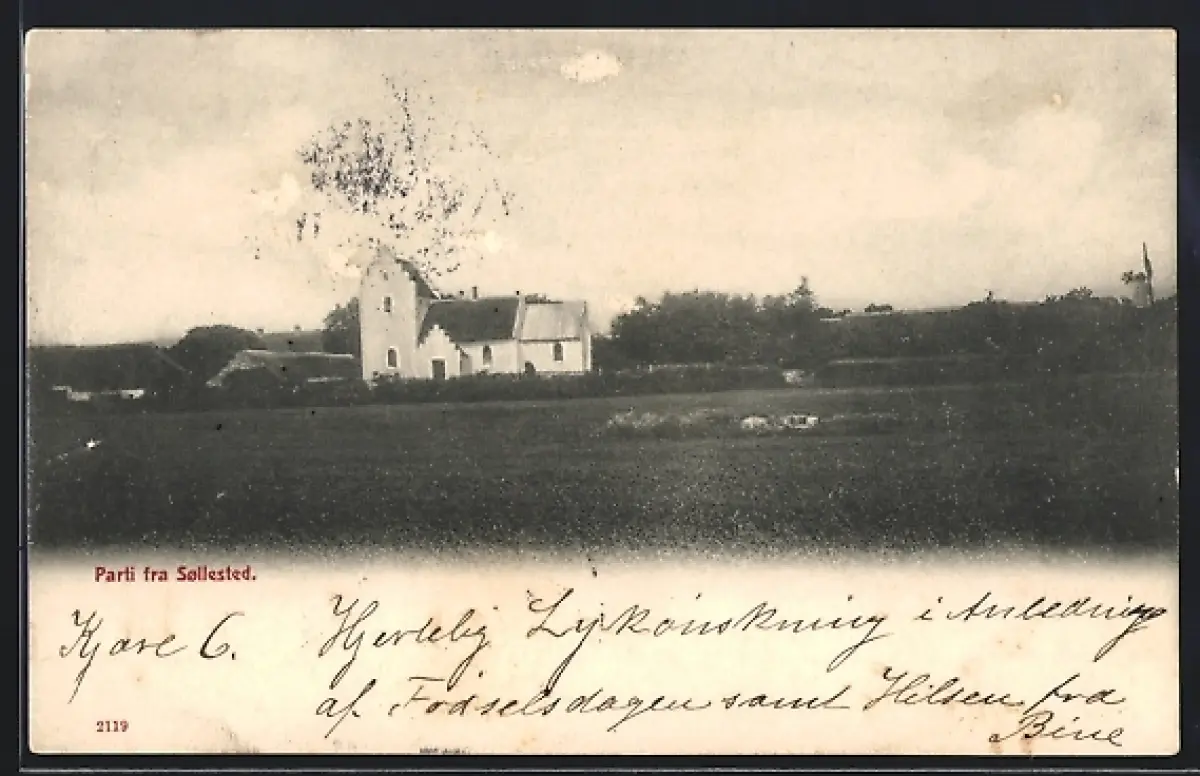 Parti fra Søllested.
Kjære C. Hjertelig Lykønskning i Anledning
af Fødselsdagen samt Hilsen fra
Bine
2119